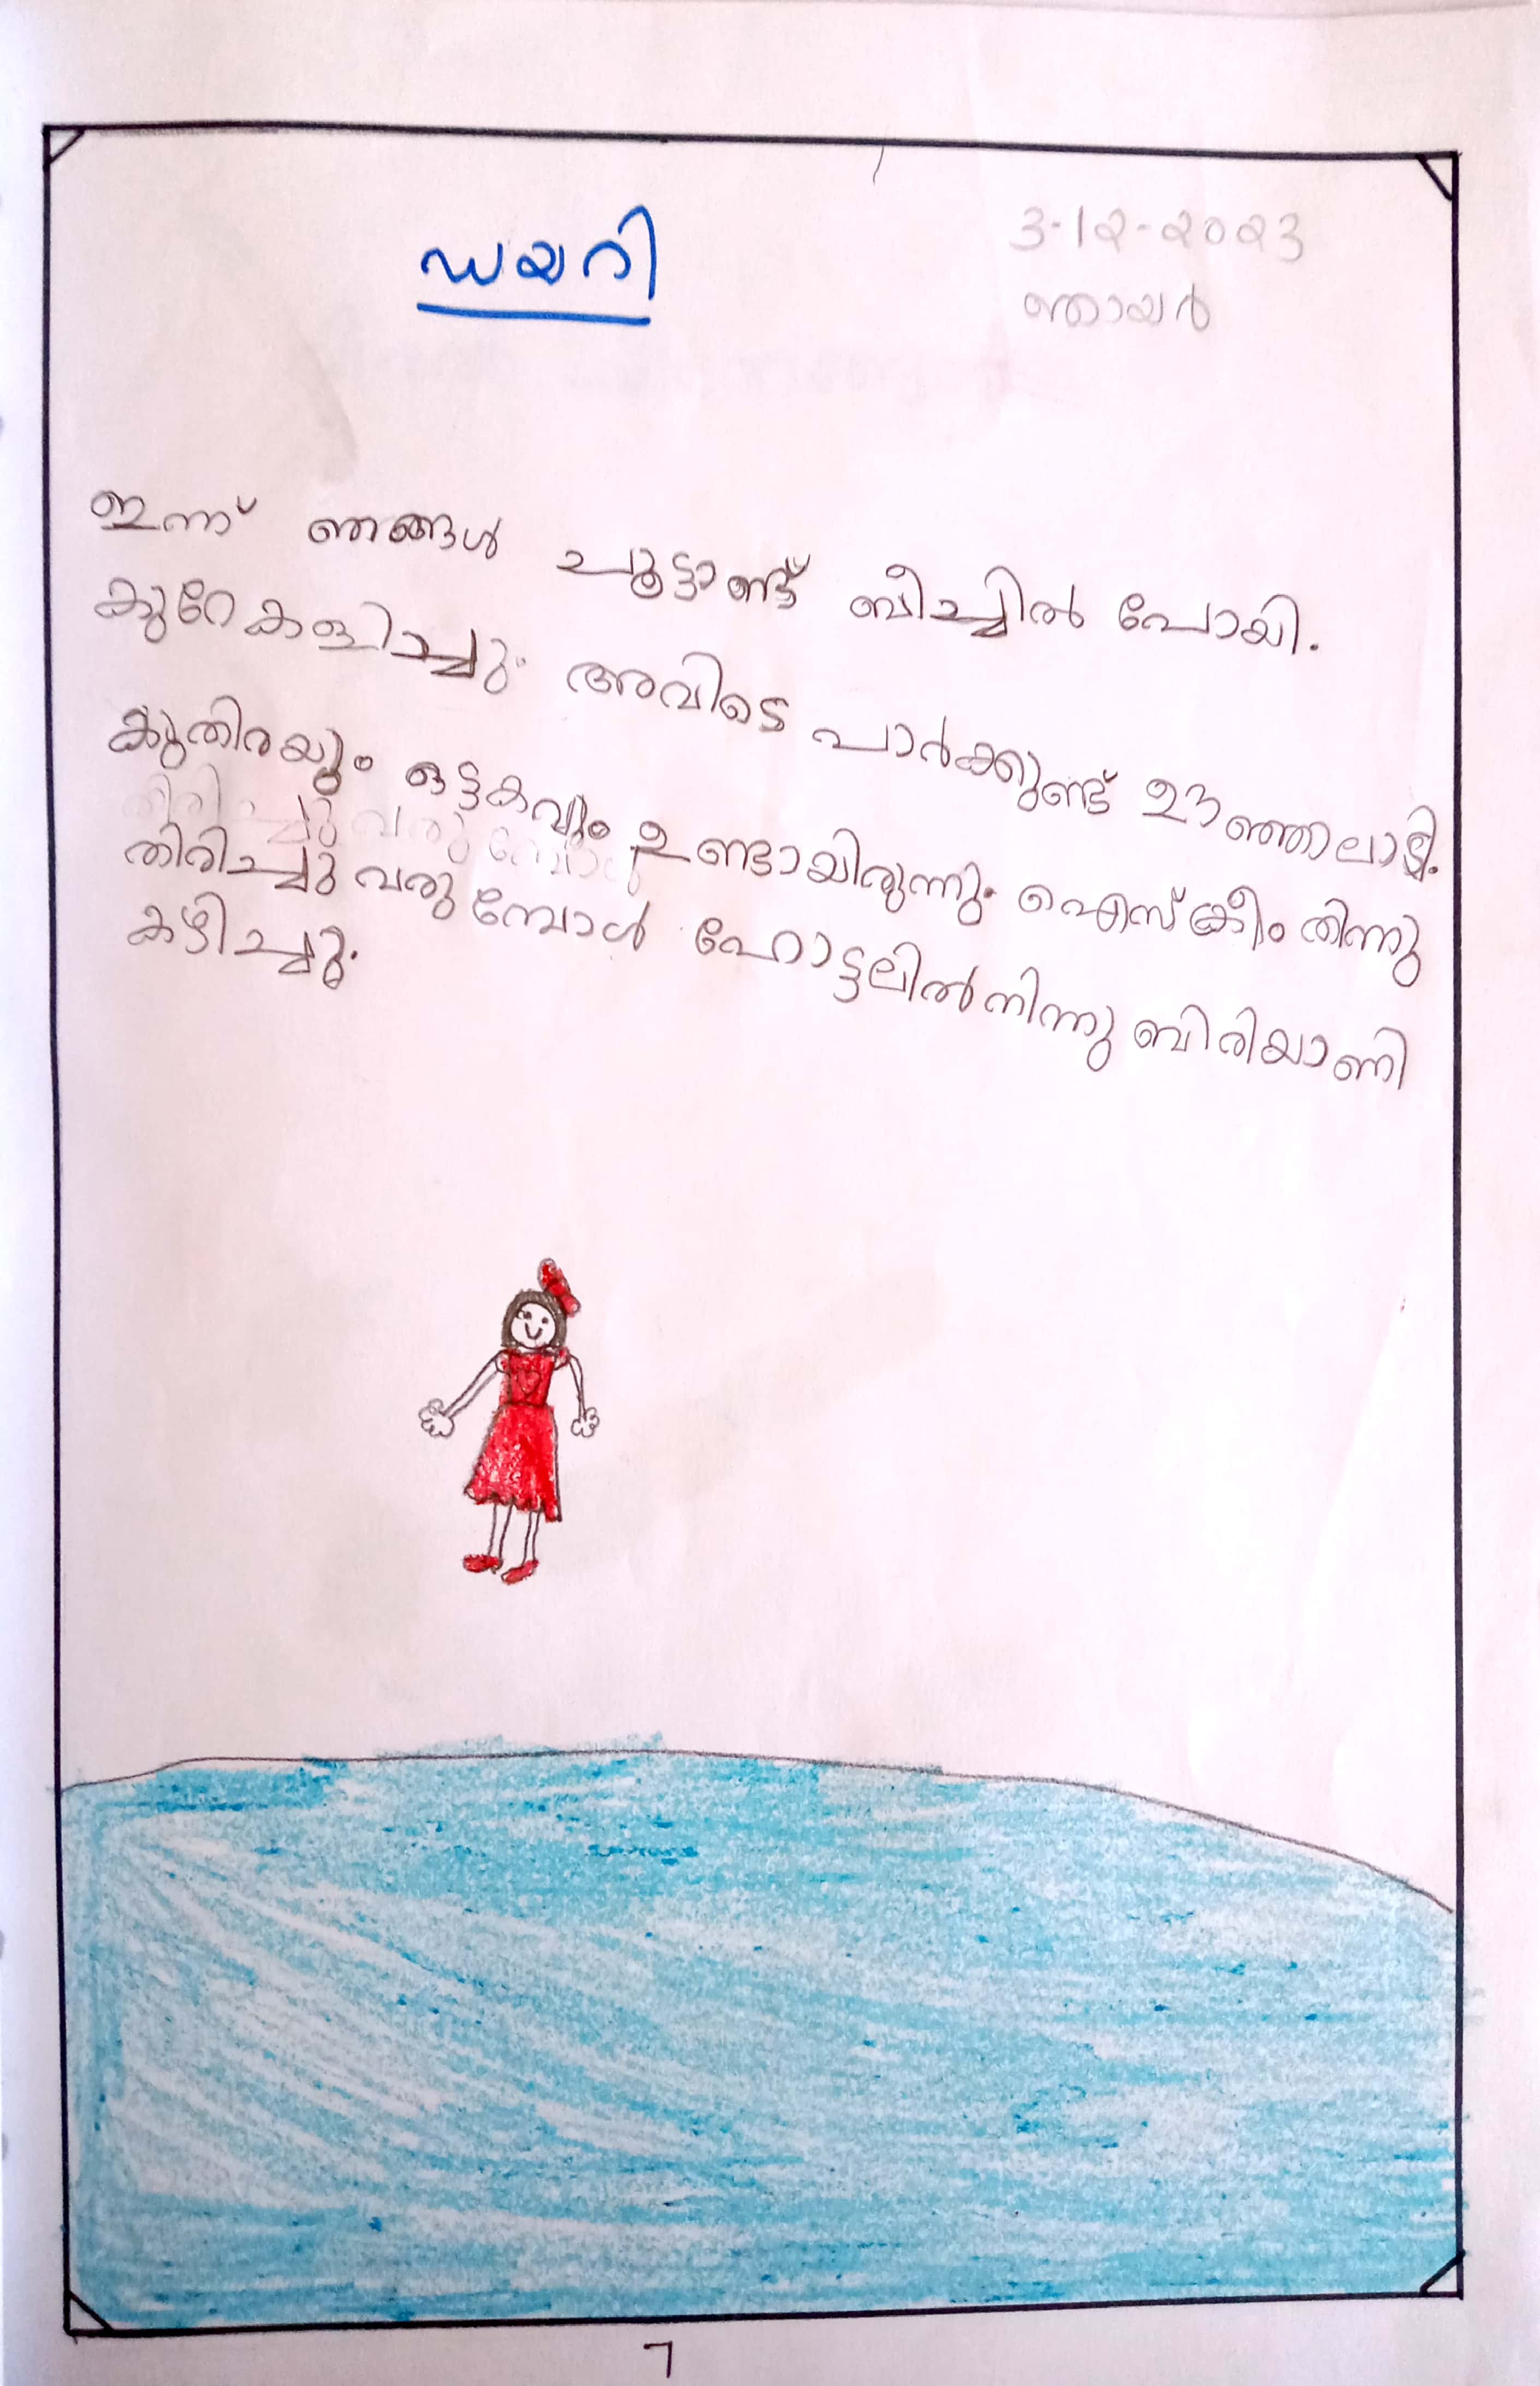 ഡയറി
3-12-2023
ഞായർ
ഇന്ന് ഞങ്ങൾ ചൂട്ടാണ്ട് ബീച്ചിൽ പോയി.
കുറേ കളിച്ചു. അവിടെ പാർക്കുണ്ട് ഊഞ്ഞാലാടി.
കുതിരയും ഒട്ടകവും ഉണ്ടായിരുന്നു. ഐസ്ക്രീം തിന്നു
തിരിച്ചു വരുമ്പോൾ ഹോട്ടലിൽ നിന്നു ബിരിയാണി
കഴിച്ചു.
7